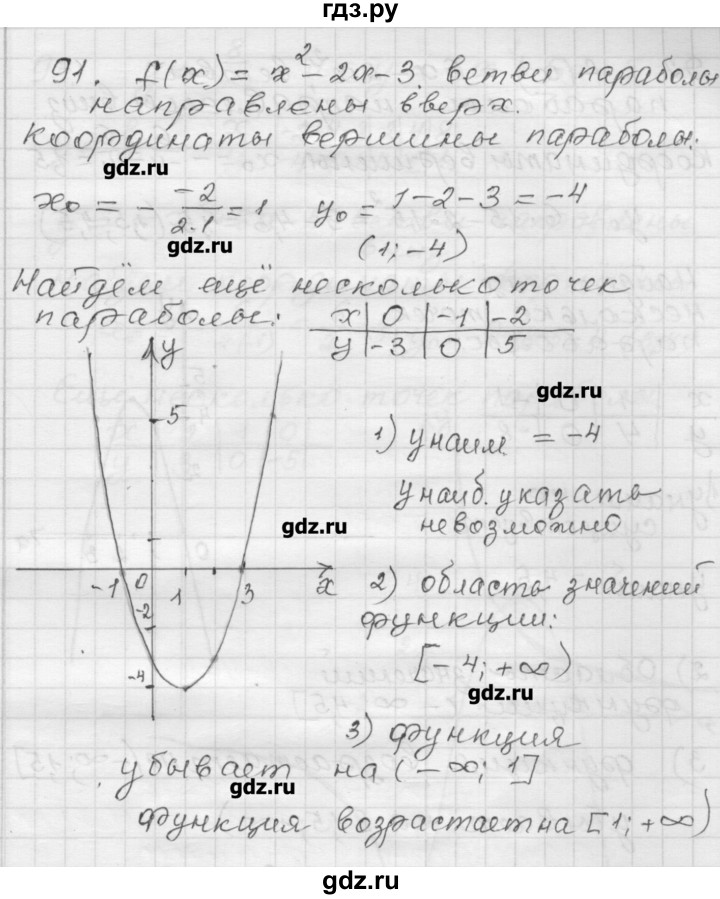 гдз.ру
91. f(x) = x² - 2x - 3 ветви параболы
направлены вверх.
Координаты вершины параболы:
gdz.ru
x₀ = - -2/2·1 = 1 y₀ = 1-2-3 = -4
gdz.ru
(1; -4)
Найдём ещё несколько точек
параболы:
x | 0 | -1 | -2
y | -3 | 0 | 5
y
gdz.ru
5
1) y наим. = -4
y наиб. указать
невозможно
gdz.ru
-1 0 1 3 x
2) область значений
функции:
-2
[-4; +∞)
-4
gdz.ru
3) функция
убывает на (-∞; 1]
gdz.ru
функция возрастает на [1; +∞)
gdz.ru